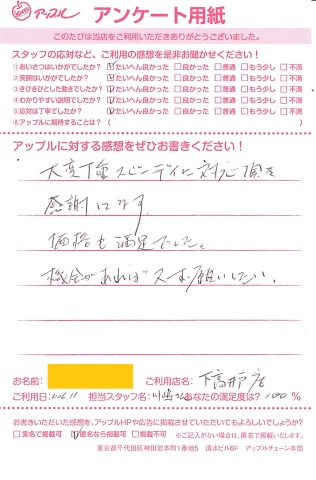 アップル アンケート用紙
このたびは当店をご利用いただきありがとうございました。
スタッフの応対など、ご利用の感想を是非お聞かせください!
①あいさつはいかがでしたか? ☑たいへん良かった □良かった □普通 □もう少し □不満
②笑顔はいかがでしたか? ☑たいへん良かった □良かった □普通 □もう少し □不満
③きびきびとした動きでしたか? ☑たいへん良かった □良かった □普通 □もう少し □不満
④わかりやすい説明でしたか? ☑たいへん良かった □良かった □普通 □もう少し □不満
⑤応対は丁寧でしたか? ☑たいへん良かった □良かった □普通 □もう少し □不満
⑥アップルに期待することは? ( )
アップルに対する感想をぜひお書きください!
大変丁重スピーディに対応頂き
感謝します。
価格も満足でした。
機会があれば又お願いしたい。
お名前: ご利用店名: 下高井戸店
ご利用日: 担当スタッフ名: 川崎さん あなたの満足度は? 100 %
お書きいただいた感想を、アップルHPや広告に掲載させていただいてもよろしいでしょうか?
□実名で掲載可 ☑匿名なら掲載可 □掲載不可 ※ご記入がない場合は、匿名で掲載いたします。
東京都千代田区神田岩本町1番地5 清水ビル6F アップルチェーン本部